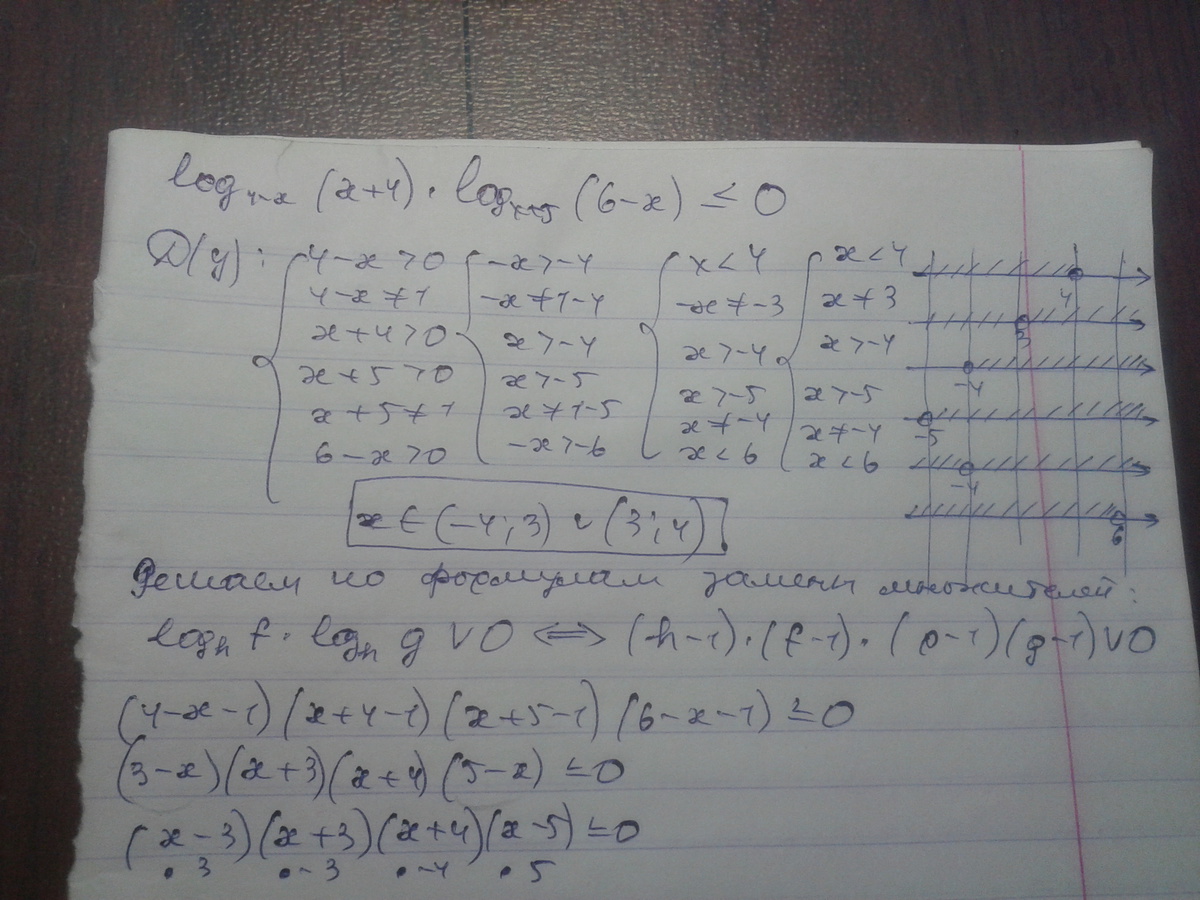 log₄₋ₓ (x+4) · logₓ₊₅ (6-x) ≤ 0
D(y): { 4-x>0 { -x>-4 { x<4 { x<4
4-x≠1 -x≠1-4 -x≠-3 x≠3
x+4>0 x>-4 x>-4 x>-4
x+5>0 x>-5 x>-5 x>-5
x+5≠1 x≠1-5 x≠-4 x≠-4
6-x>0 -x>-6 x<6 x<6
4
3
-4
-5
-4
6
x ∈ (-4; 3) ∪ (3; 4)
Решаем по формулам замены множителей:
logₕ f · logₕ g ∨ 0 ⟺ (h-1)·(f-1)·(p-1)(g-1) ∨ 0
(4-x-1)(x+4-1)(x+5-1)(6-x-1) ≤ 0
(3-x)(x+3)(x+4)(5-x) ≤ 0
(x-3)(x+3)(x+4)(x-5) ≤ 0
• 3 • -3 • -4 • 5